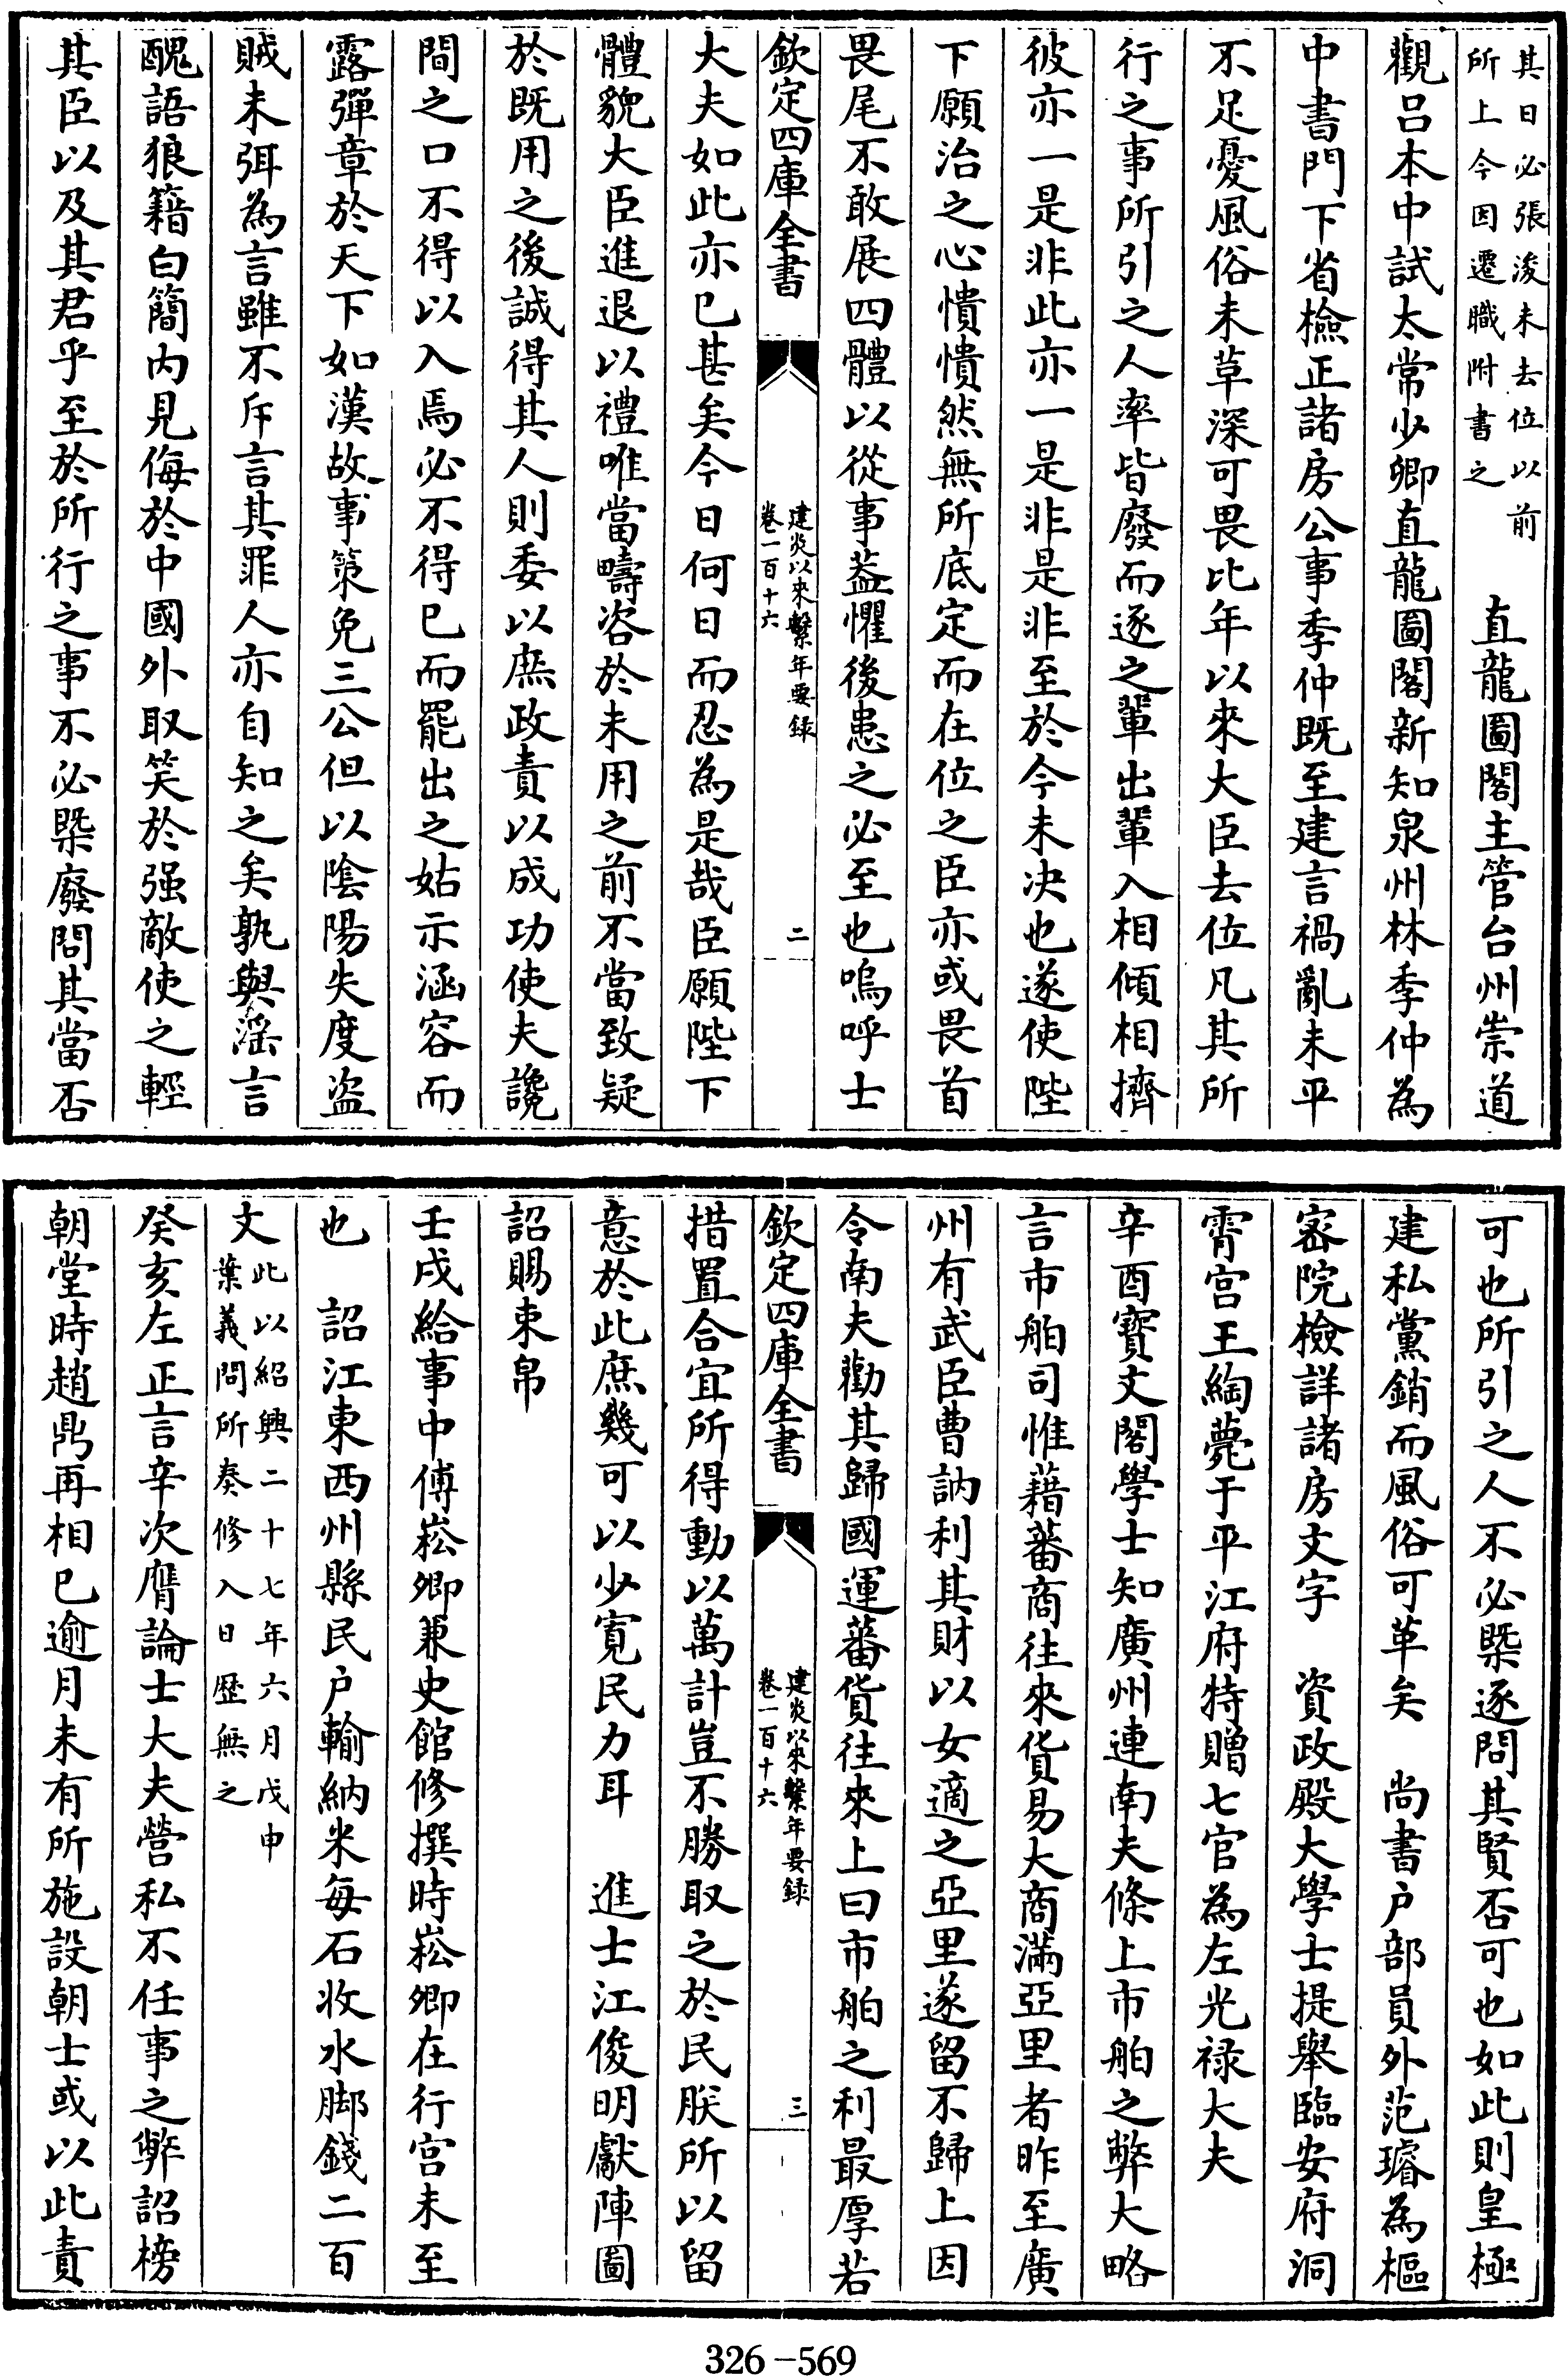 其日必張浚未去位以前
所上今因遷職附書之
直龍圖閣主管台州崇道
觀呂本中試太常少卿直龍圖閣新知泉州林季仲為
中書門下省檢正諸房公事季仲既至建言禍亂未平
不足憂風俗未草深可畏比年以來大臣去位凡其所
行之事所引之人率皆廢而逐之之輩出輩入相傾相擠
彼亦一是非此亦一是非是非至於今未决也遂使陛
下願治之心憒憒然無所底定而在位之臣亦或畏首
畏尾不敢展四體以從事蓋懼後患之必至也嗚呼士
欽定四庫全書
建炎以來繫年要録
卷一百十六
二
大夫如此亦已甚矣今日何日而忍為是哉臣願陛下
體貌大臣進退以禮唯當疇咨於未用之前不當致疑
於既用之後誠得其人則委以庶政責以成功使夫讒
間之口不得以入焉必不得已而罷出之姑示涵容而
露彈章於天下如漢故事策免三公但以陰陽失度盜
賊未弭為言雖不斥言其罪人亦自知之矣孰與滛言
醜語狼籍白簡内見侮於中國外取笑於强敵使之輕
其臣以及其君乎至於所行之事不必槩廢問其當否
可也所引之人不必槩逐問其賢否可也如此則皇極
建私黨銷而風俗可革矣　尚書户部員外范璿為樞
密院檢詳諸房文字　資政殿大學士提舉臨安府洞
霄宫王綯薨于平江府特贈七官為左光禄大夫
辛酉寶文閣學士知廣州連南夫條上市舶之弊大略
言市舶司惟藉蕃商往來貨易大商滿亞里者昨至廣
州有武臣曹訥利其財以女適之亞里遂留不歸上因
令南夫勸其歸國運蕃貨往來上曰市舶之利最厚若
欽定四庫全書
建炎以來繫年要録
卷一百十六
三
措置合宜所得動以萬計豈不勝取之於民朕所以留
意於此庶幾可以少寛民力耳　進士江俊明獻陣圖
詔賜束帛
壬戌給事中傅崧卿兼史館修撰時崧卿在行宫未至
也　詔江東西州縣民户輸納米每石收水脚錢二百
文
此以紹興二十七年六月戊申
葉義問所奏修入日歴無之
癸亥左正言辛次膺論士大夫營私不任事之弊詔榜
朝堂時趙鼎再相已逾月未有所施設朝士或以此責
326－569